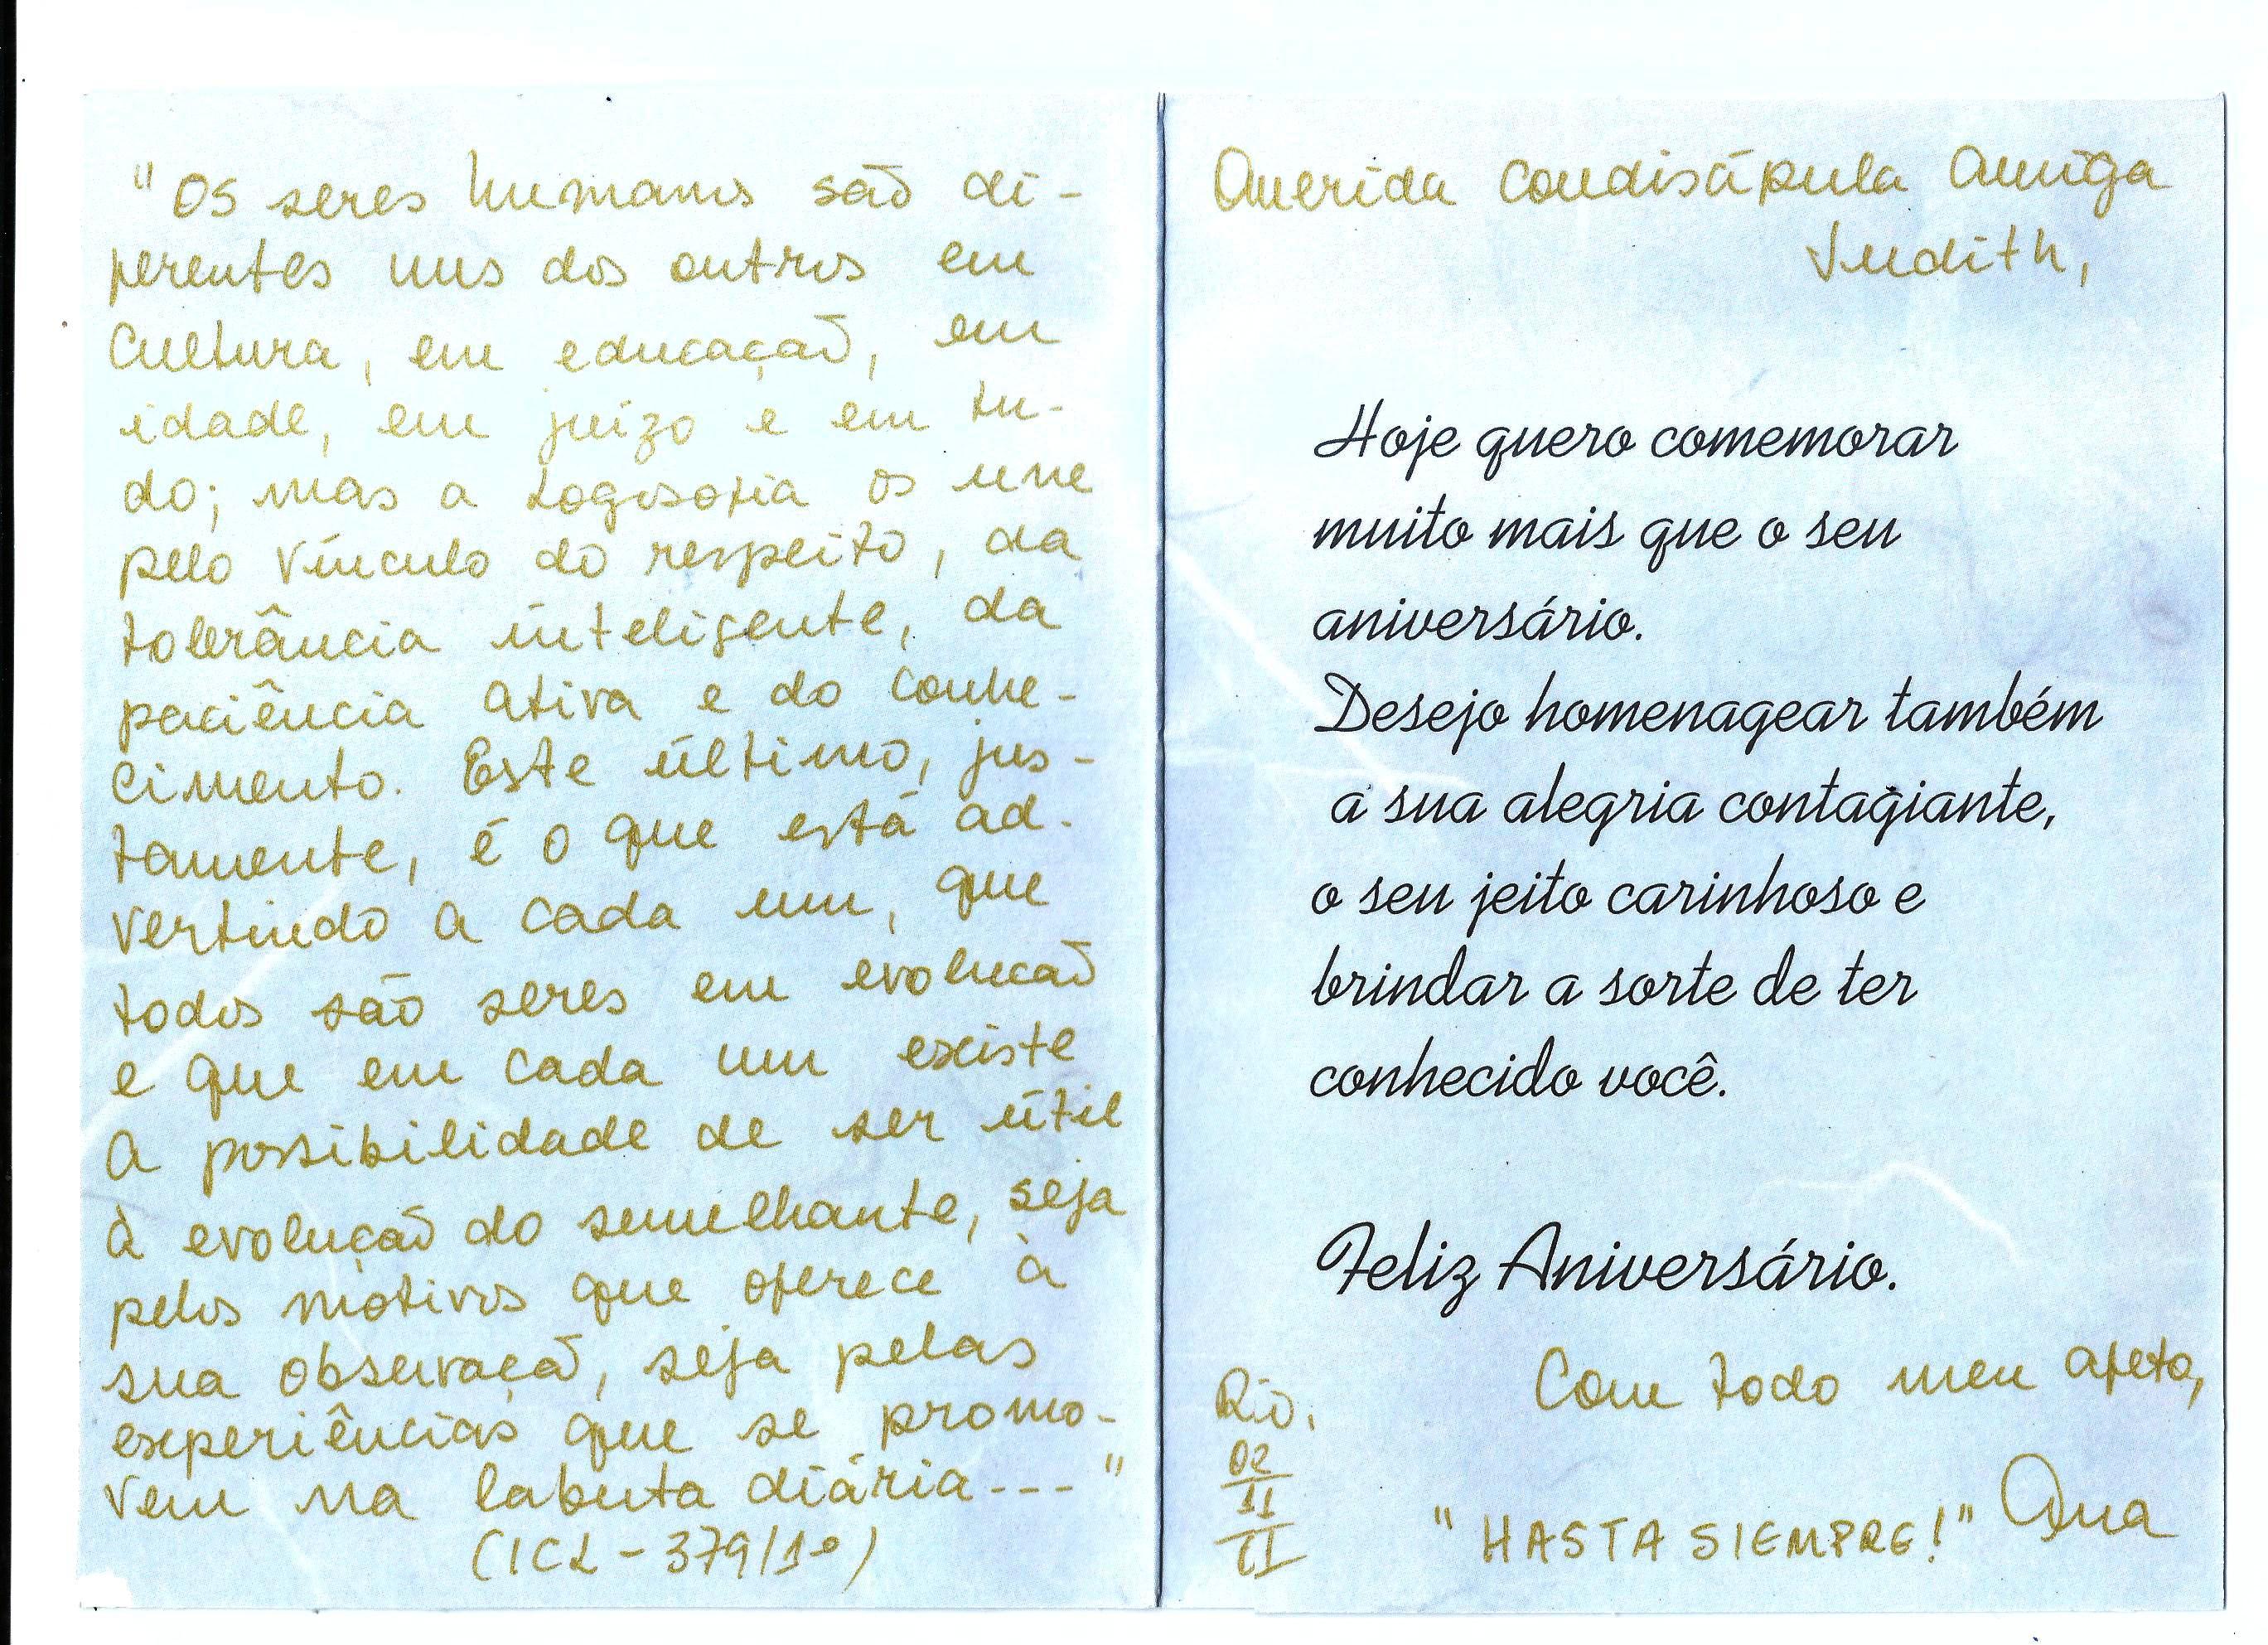 "Os seres humanos são di-
ferentes uns dos outros em
cultura, em educação, em
idade, em juizo e em tu-
do; mas a Logosofia os une
pelo vínculo do respeito, da
tolerância inteligente, da
paciência ativa e do conhe-
cimento. Este último, jus-
tamente, é o que está ad-
vertindo a cada um, que
todos são seres em evolucão
e que em cada um existe
a possibilidade de ser útil
à evolução do semelhante, seja
pelos motivos que oferece à
sua observação, seja pelas
experiências que se promo-
vem na labuta diária---"
(ICL - 379/1º)
Querida condiscípula amiga
Judith,
Hoje quero comemorar
muito mais que o seu
aniversário.
Desejo homenagear também
a sua alegria contagiante,
o seu jeito carinhoso e
brindar a sorte de ter
conhecido você.
Feliz Aniversário.
Com todo meu afeto,
Rio,
02
11
11
"HASTA SIEMPRE!" Ana